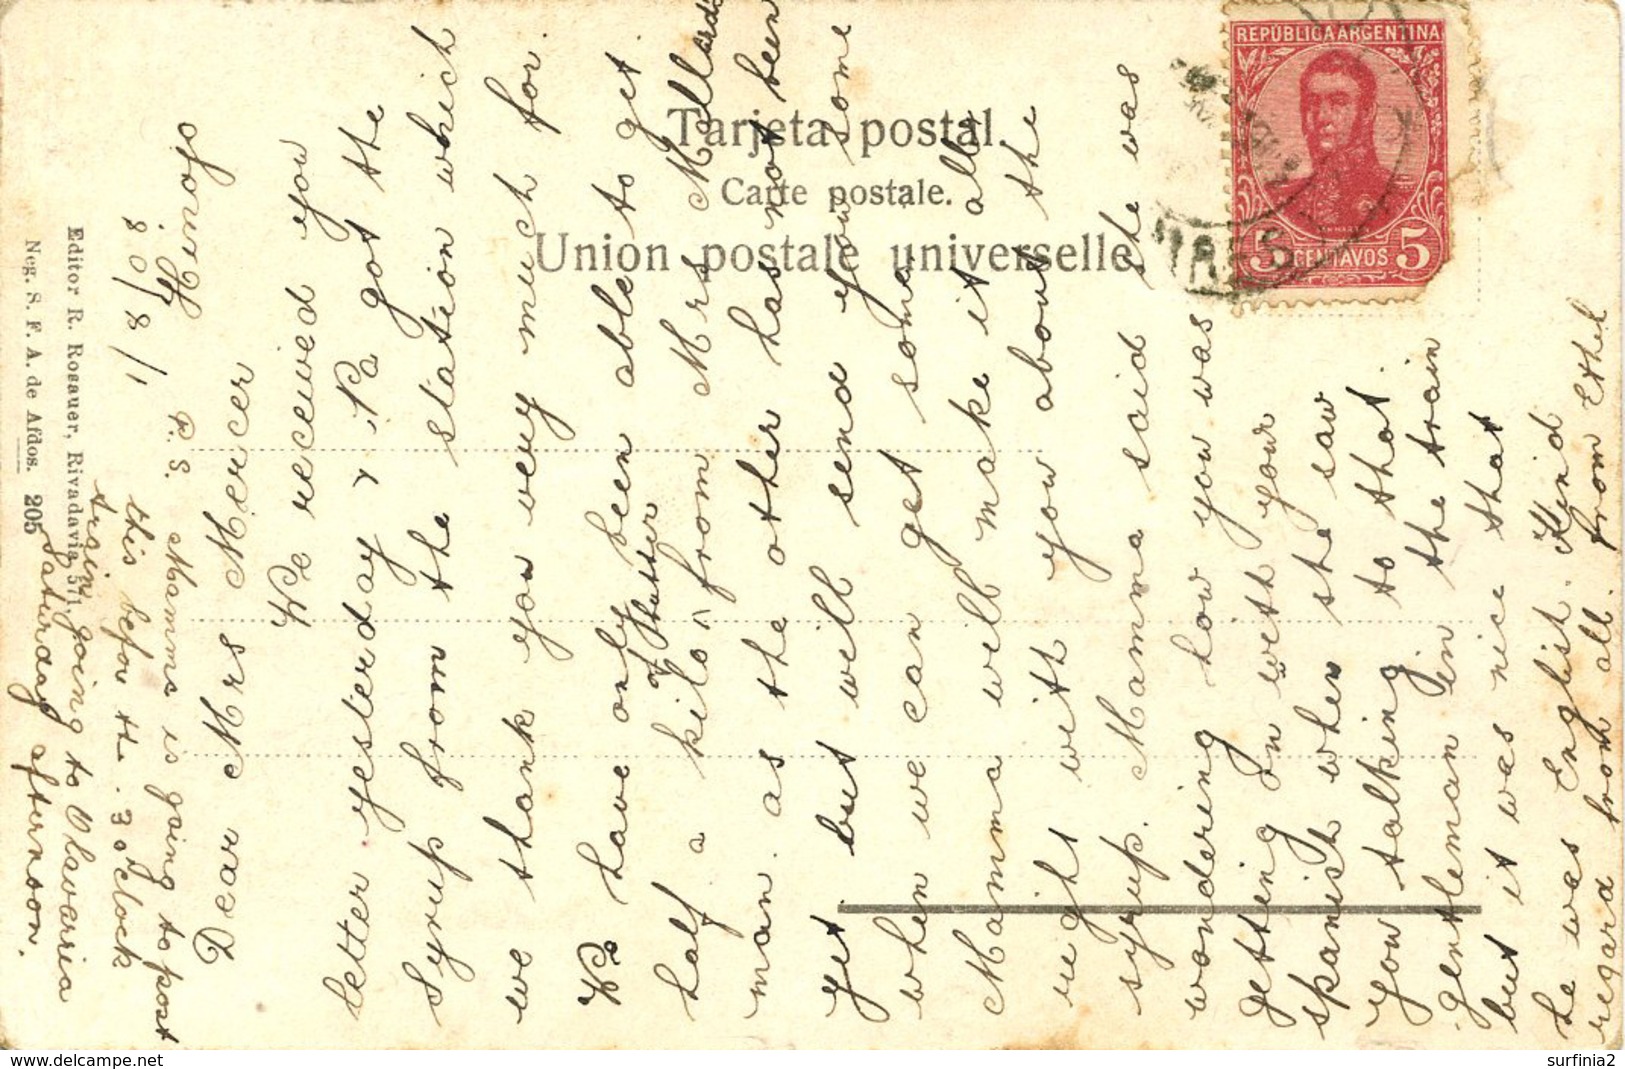 Hinojo
8/10/8/1
Dear Mrs Mercer
We received you
letter yesterday & Pa got the
syrup from the station which
we thank you very much for.
We have only been able to get
half a kilo of Butter from Mrs Mallards
man as the other has not been
yet but will send you some
when we can get some
Mamma will make it all
right with you about the
syrup. Mamma said she was
wondering how you was
getting in with your
spanish when she saw
you talking to that
gentleman in the train
but it was nice that
he was English. Kind
regard from all. from Ethel
P.S. Mamma is going to post
this before the 3 oclock
train going to Olavarria
Saturday afternoon.
Tarjeta postal.
Carte postale.
Union postale universelle
REPUBLICA ARGENTINA
5 CENTAVOS 5
AIRES
Editor R. Rosauer, Rivadavia 571
Neg. S. F. A. de Afdos. 205
surfinia2